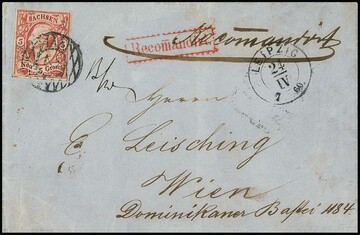 SACHSEN
Recomandirt
Recomandirt
LEIPZIG
24
IV
7
60
Herrn
E Leisching
Wien
Dominikaner Bastei 1184